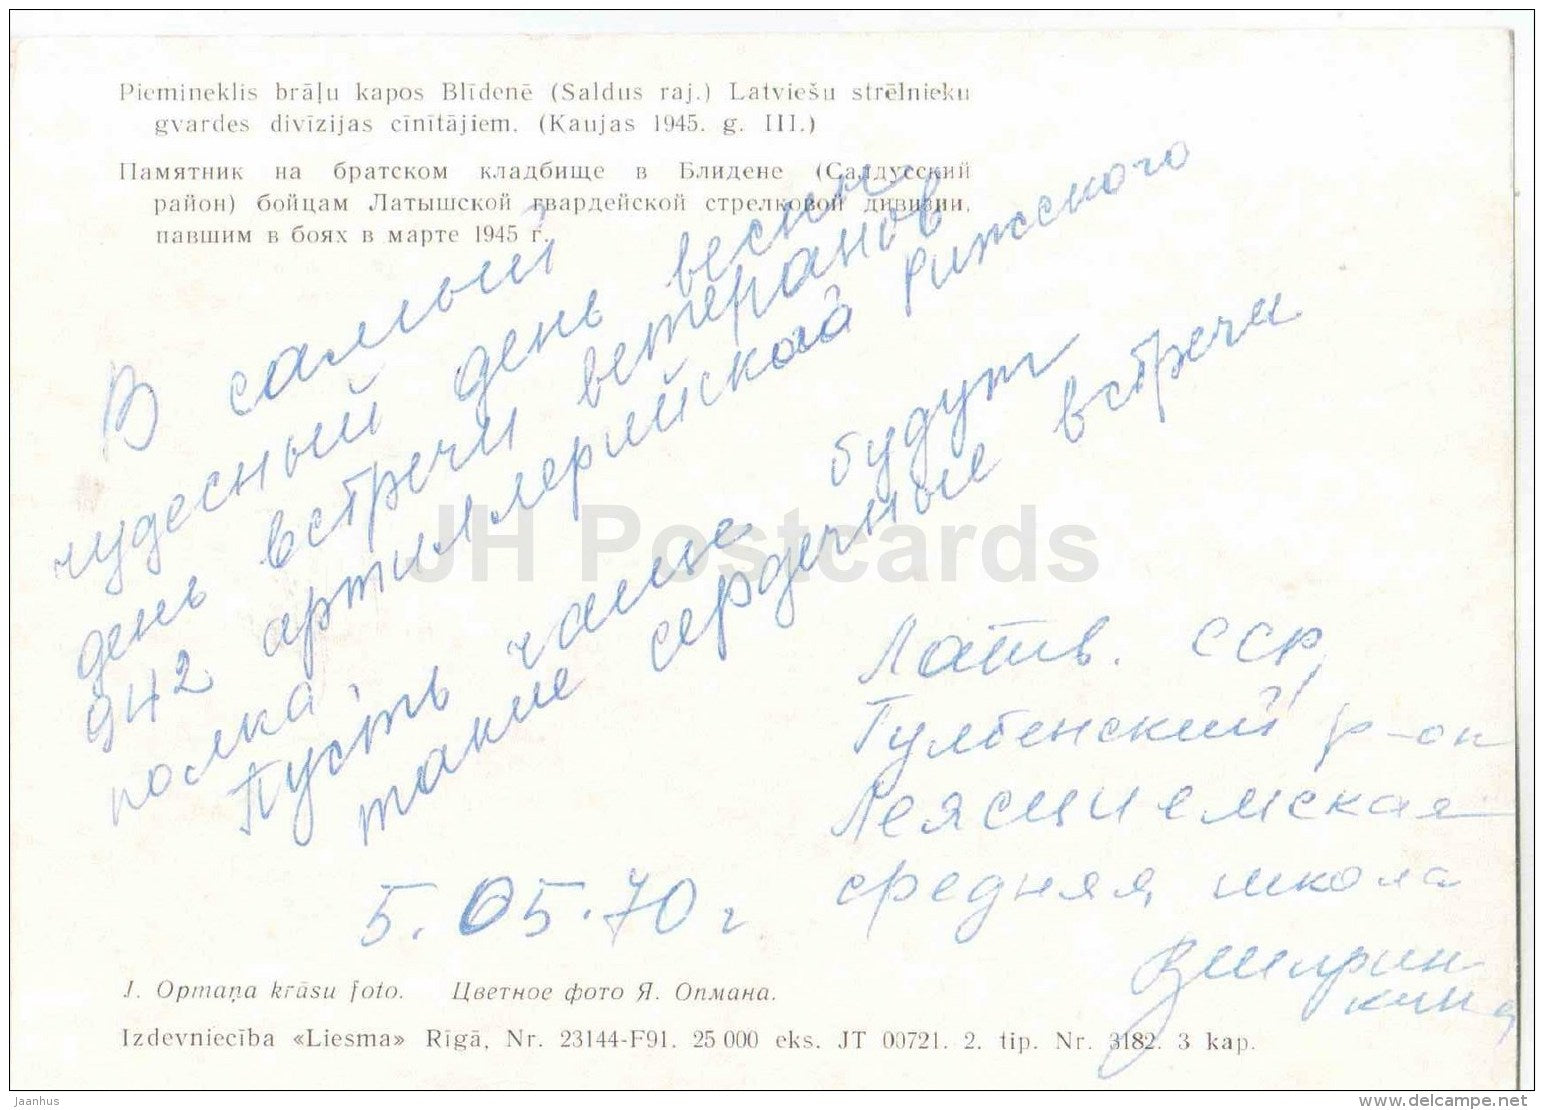 Piemineklis brāļu kapos Blīdenē (Saldus raj.) Latviešu strēlnieku
gvardes divīzijas cīnītājiem. (Kaujas 1945. g. III.)
Памятник на братском кладбище в Блидене (Салдусский
район) бойцам Латышской гвардейской стрелковой дивизии,
павшим в боях в марте 1945 г.
В самый
чудесный день весны
день встречи ветеранов
942 артиллерийского Рижского
полка
Пусть чаще будут
такие сердечные встречи
5.05.70 г
Латв. ССР,
Гулбенский р-он
Леясциемская
средняя школа
JH Postcards
J. Opmaņa krāsu foto. Цветное фото Я. Опмана.
Izdevniecība «Liesma» Rīgā, Nr. 23144-F91. 25 000 eks. JT 00721. 2. tip. Nr. 3182. 3 kap.
Jaanhus
www.delcampe.net